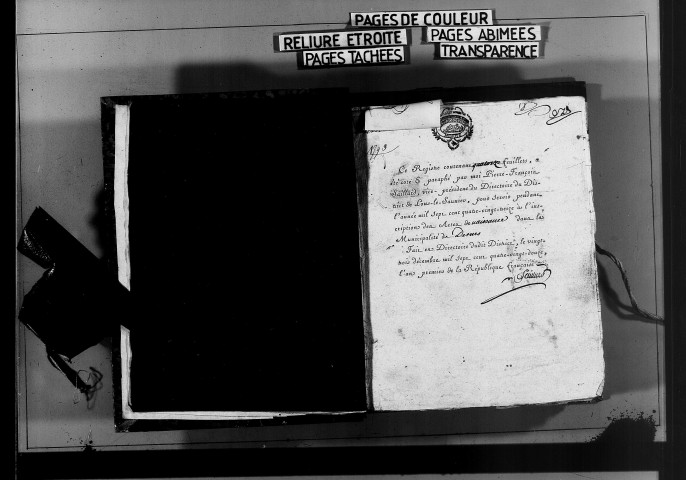 PAGES DE COULEUR
RELIURE ETROITE
PAGES ABIMEES
PAGES TACHEES
TRANSPARENCE
1793
Ce Registre contenant quatorze feuillets, a
été coté & paraphé par moi Pierre-François
Gaillard, vice-président du Directoire du Dis-
trict de Lons-le-Saunier, pour servir pendant
l'année mil sept cent quatre-vingt-treize à l'ins-
cription des Actes de naissance dans la
Municipalité de Desnes
Fait en Directoire dudit District, le vingt-
trois décembre mil sept cent quatre-vingt-douze,
l'an premier de la République française